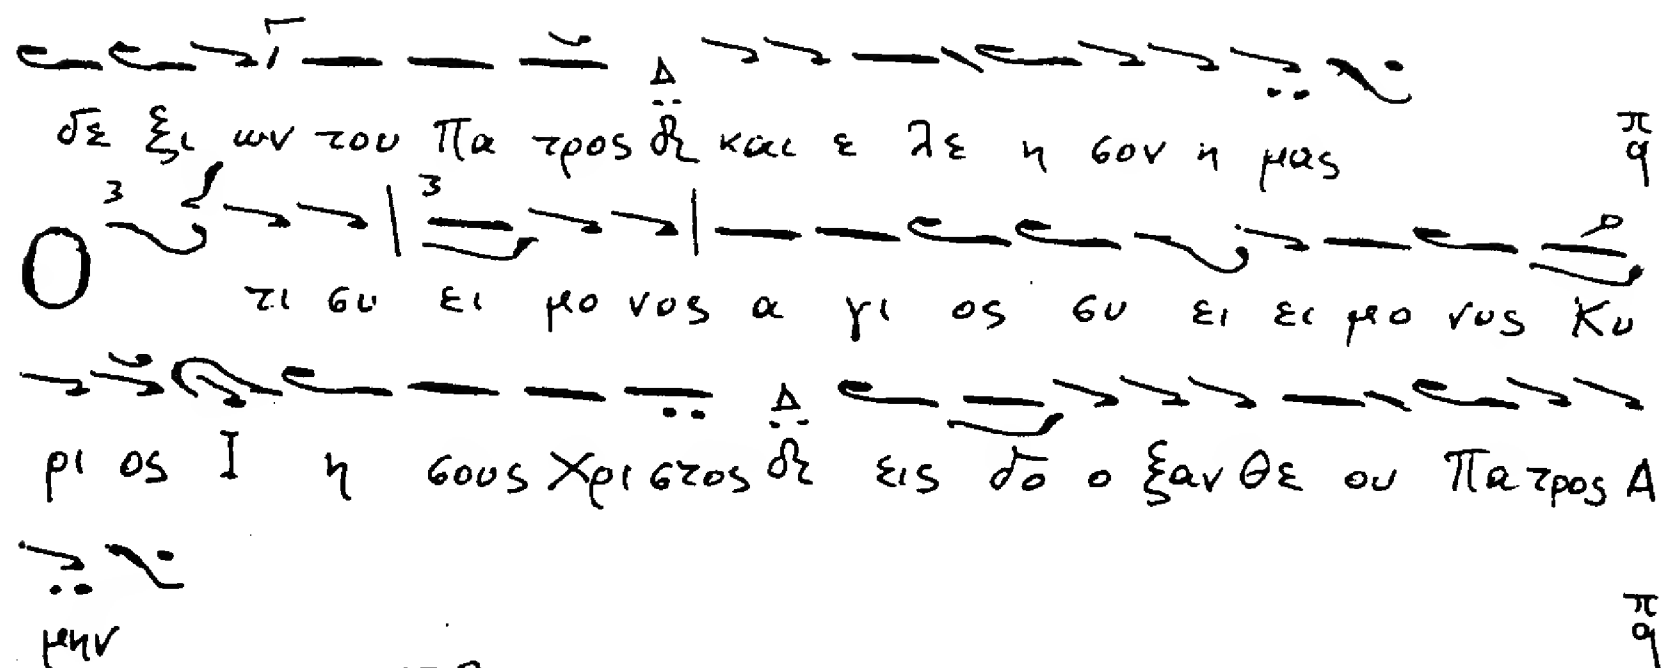 Δ
δε ξι ων του Πα τρος δι και ε λε η σον η μας π q
Ο τι συ ει μο νος α γι ος συ ει ει μο νος Κυ
Δ
ρι ος Ι η σους Χρι στος δι εις δο ο ξαν Θε ου Πα τρος Α
μην π q